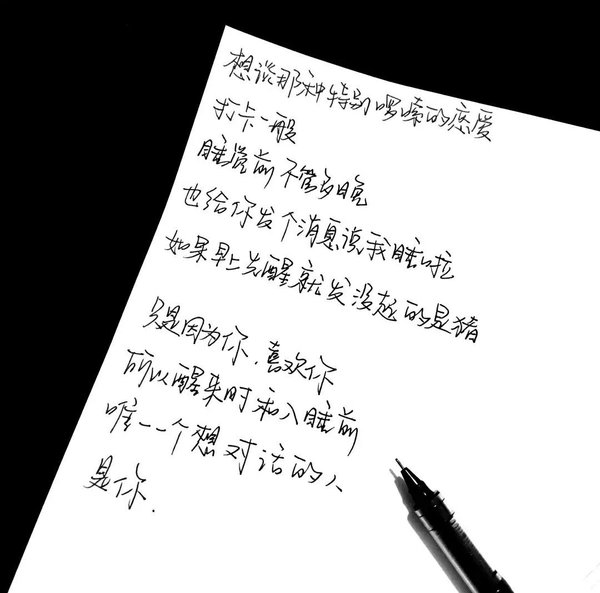 想谈那种特别啰嗦的恋爱
打卡一般
睡觉前不管多晚
也给你发个消息说我睡啦
如果早上先醒就发没起的是猪
只是因为你.喜欢你
所以醒来时和入睡前
唯一一个想对话的人
是你.